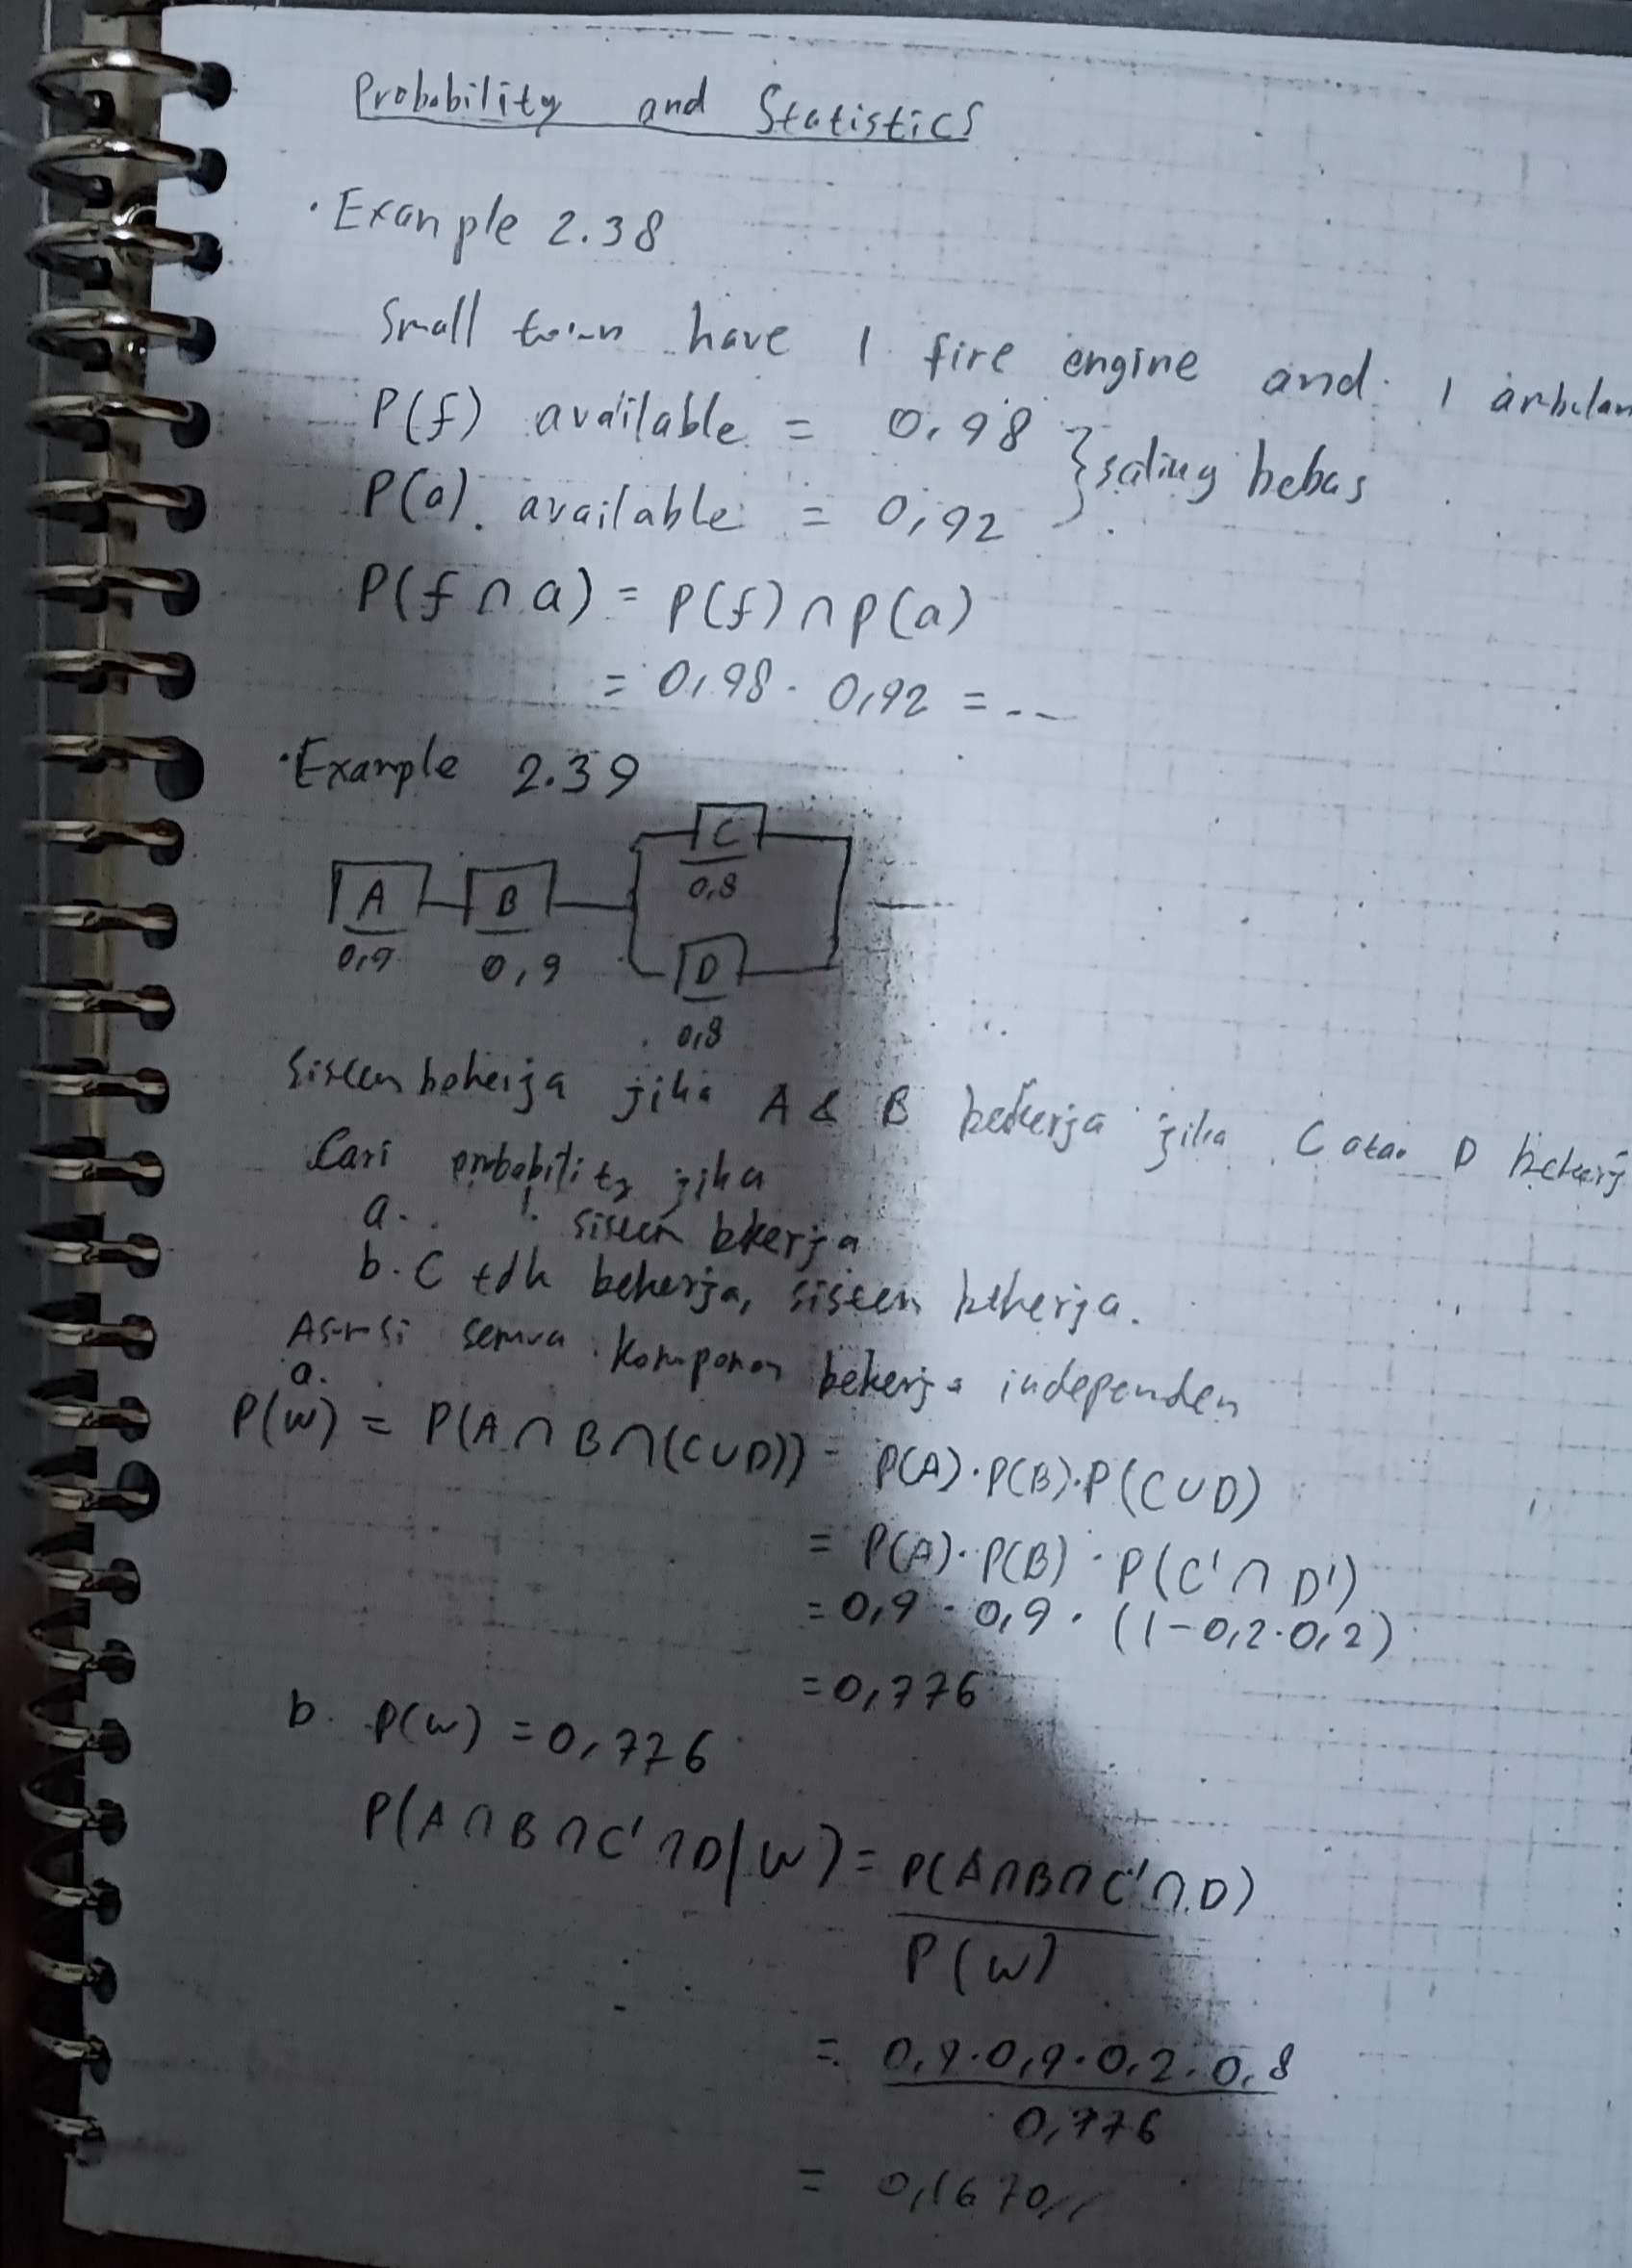 Probability and Statistics
· Example 2.38
Small town have 1 fire engine and 1 ambulan
P(f) available = 0,98
P(a) available = 0,92 } saling bebas
P(f ∩ a) = P(f) ∩ P(a)
= 0,98 · 0,92 = ...
· Example 2.39
C
0,8
A B
0,9 0,9
D
0,8
bekerja jika A & B bekerja jika C atau D bekerj
Cari probability jika
a. sistem bkerja
b. C tdk bekerja, sistem bekerja.
Asumsi semua komponen bekerja independen
a.
P(W) = P(A ∩ B ∩ (C ∪ D)) = P(A) · P(B) · P(C ∪ D)
= P(A) · P(B) · P(C' ∩ D')
= 0,9 · 0,9 · (1 - 0,2 · 0,2)
= 0,776
b. P(W) = 0,776
P(A ∩ B ∩ C' ∩ D | W) = P(A ∩ B ∩ C' ∩ D)
P(W)
= 0,9 · 0,9 · 0,2 · 0,8
0,776
= 0,1670 //